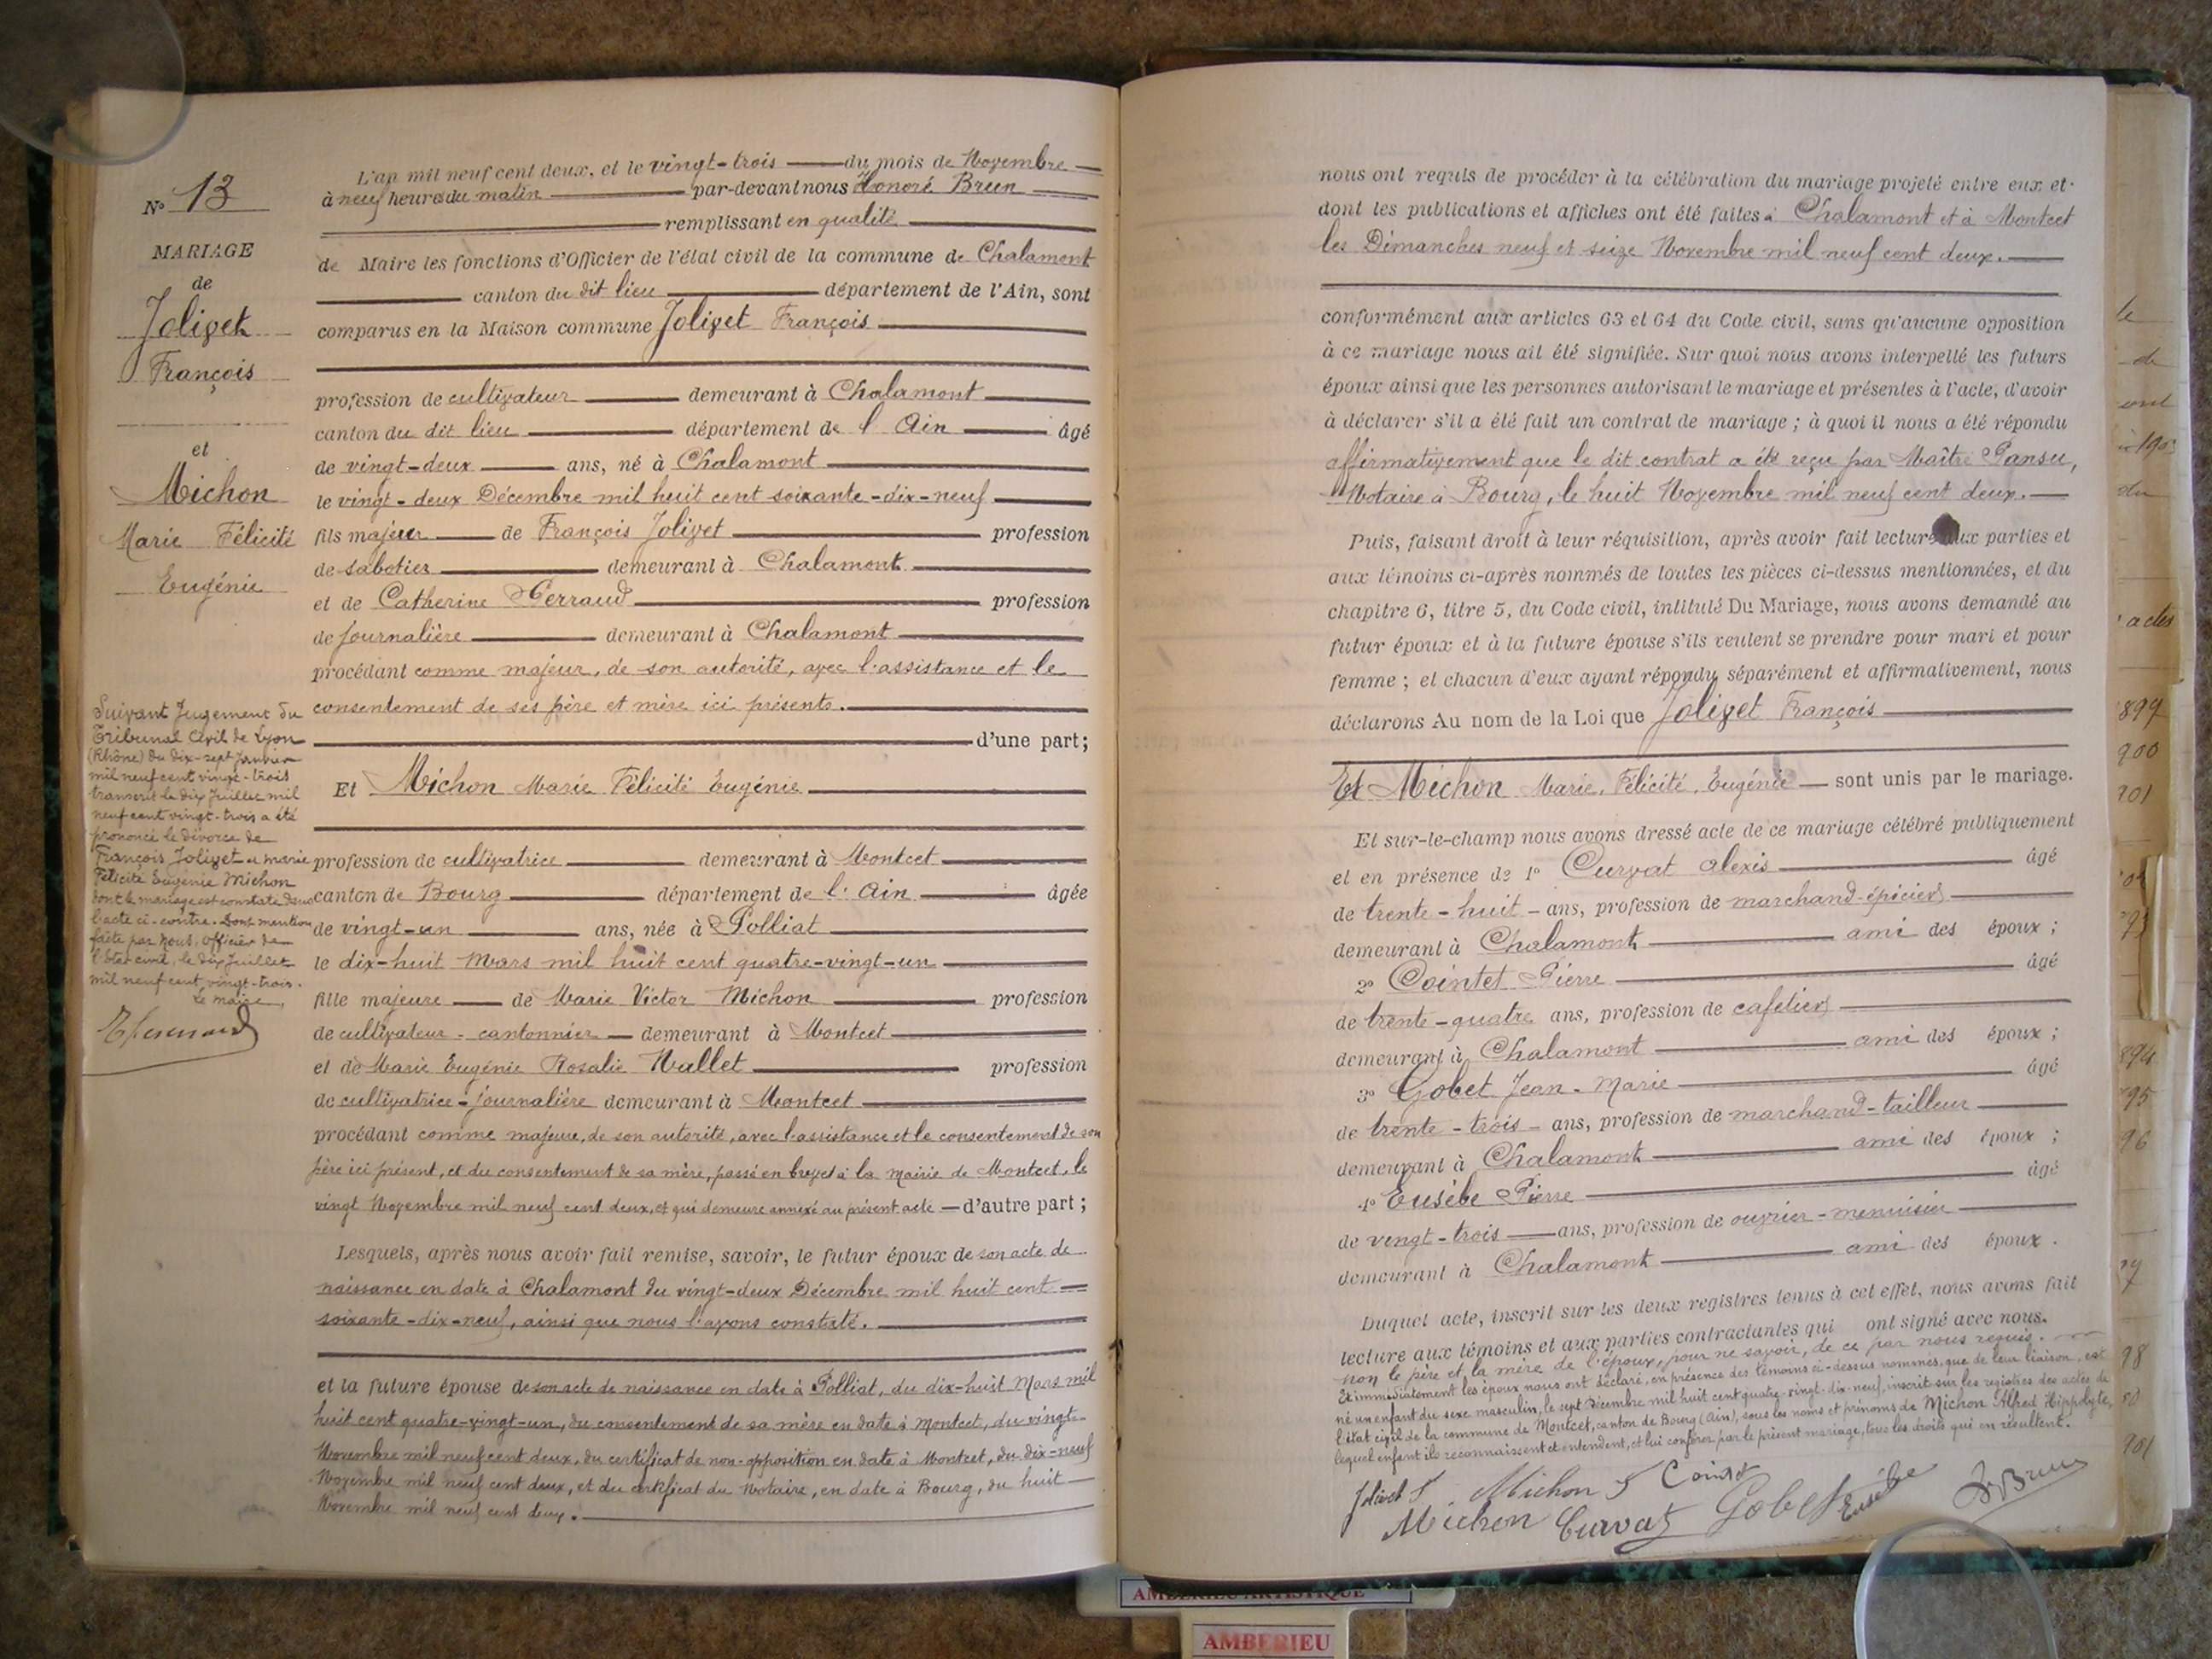 N° 13
MARIAGE
de
Jolivet
François
et
Michon
Marie Félicité
Eugénie
Suivant Jugement du
Tribunal Civil de Lyon
(Rhône) du dix-sept Janvier
mil neuf cent vingt-trois
transcrit le dix Juillet mil
neuf cent vingt-trois a été
prononcé le divorce de
François Jolivet et Marie
Félicité Eugénie Michon
dont le mariage est constaté dans
l'acte ci-contre. Dont mention
faite par nous, officier de
l'état civil, le dix Juillet
mil neuf cent vingt-trois.
Le maire,
L'an mil neuf cent deux, et le vingt-trois du mois de Novembre
à neuf heures du matin par-devant nous Honoré Brun
remplissant en qualité
de Maire les fonctions d'Officier de l'état civil de la commune de Chalamont
canton du dit lieu département de l'Ain, sont
comparus en la Maison commune Jolivet François
profession de cultivateur demeurant à Chalamont
canton du dit lieu département de l'Ain âgé
de vingt-deux ans, né à Chalamont
le vingt-deux Décembre mil huit cent soixante-dix-neuf
fils majeur de François Jolivet profession
de sabotier demeurant à Chalamont
et de Catherine Perraud profession
de journalière demeurant à Chalamont
procédant comme majeur, de son autorité, avec l'assistance et le
consentement de ses père et mère ici présents.
d'une part;
Et Michon Marie Félicité Eugénie
profession de cultivatrice demeurant à Montcet
canton de Bourg département de l'Ain âgée
de vingt-un ans, née à Polliat
le dix-huit Mars mil huit cent quatre-vingt-un
fille majeure de Marie Victor Michon profession
de cultivateur-cantonnier demeurant à Montcet
et de Marie Eugénie Rosalie Nallet profession
de cultivatrice-journalière demeurant à Montcet
procédant comme majeure, de son autorité, avec l'assistance et le consentement de son
père ici présent, et du consentement de sa mère, passé en brevet à la mairie de Montcet, le
vingt Novembre mil neuf cent deux, et qui demeure annexé au présent acte — d'autre part;
Lesquels, après nous avoir fait remise, savoir, le futur époux de son acte de
naissance en date à Chalamont du vingt-deux Décembre mil huit cent
soixante-dix-neuf, ainsi que nous l'avons constaté.
et la future épouse de son acte de naissance en date à Polliat, du dix-huit Mars mil
huit cent quatre-vingt-un, du consentement de sa mère en date à Montcet, du vingt
Novembre mil neuf cent deux, du certificat de non-opposition en date à Montcet, du dix-neuf
Novembre mil neuf cent deux, et du certificat du Notaire, en date à Bourg, du huit
Novembre mil neuf cent deux.
nous ont requis de procéder à la célébration du mariage projeté entre eux et
dont les publications et affiches ont été faites à Chalamont et à Montcet
les Dimanches neuf et seize Novembre mil neuf cent deux.
conformément aux articles 63 et 64 du Code civil, sans qu'aucune opposition
à ce mariage nous ait été signifiée. Sur quoi nous avons interpellé les futurs
époux ainsi que les personnes autorisant le mariage et présentes à l'acte, d'avoir
à déclarer s'il a été fait un contrat de mariage; à quoi il nous a été répondu
affirmativement que le dit contrat a été reçu par Maître Pansu,
Notaire à Bourg, le huit Novembre mil neuf cent deux.
Puis, faisant droit à leur réquisition, après avoir fait lecture aux parties et
aux témoins ci-après nommés de toutes les pièces ci-dessus mentionnées, et du
chapitre 6, titre 5, du Code civil, intitulé Du Mariage, nous avons demandé au
futur époux et à la future épouse s'ils veulent se prendre pour mari et pour
femme; et chacun d'eux ayant répondu séparément et affirmativement, nous
déclarons Au nom de la Loi que Jolivet François
Et Michon Marie, Félicité, Eugénie sont unis par le mariage.
Et sur-le-champ nous avons dressé acte de ce mariage célébré publiquement
et en présence de 1° Curvat Alexis âgé
de trente-huit ans, profession de marchand-épicier
demeurant à Chalamont ami des époux;
2° Cointet Pierre âgé
de trente-quatre ans, profession de cafetier
demeurant à Chalamont ami des époux;
3° Gobet Jean-Marie âgé
de trente-trois ans, profession de marchand-tailleur
demeurant à Chalamont ami des époux;
4° Eusèbe Pierre âgé
de vingt-trois ans, profession de ouvrier-menuisier
demeurant à Chalamont ami des époux.
Duquel acte, inscrit sur les deux registres tenus à cet effet, nous avons fait
lecture aux témoins et aux parties contractantes qui ont signé avec nous.
non le père et la mère de l'époux, pour ne savoir, de ce par nous requis.
Et immédiatement les époux nous ont déclaré, en présence des témoins ci-dessus nommés, que de leur liaison, est
né un enfant du sexe masculin, le sept Décembre mil huit cent quatre-vingt-dix-neuf, inscrit sur les registres des actes de
l'état civil de la commune de Montcet, canton de Bourg (Ain), sous les noms et prénoms de Michon Alfred Hippolyte,
lequel enfant ils reconnaissent et entendent, et lui conférer par le présent mariage, tous les droits qui en résultent.
Jolivet F Michon F Cointet
Michon Curvat Gobet Eusèbe H Brun
le
de
ont
190
du
actes
899
900
901
894
95
96
98
901
AMBERIEU ARTISTIQUE
AMBERIEU